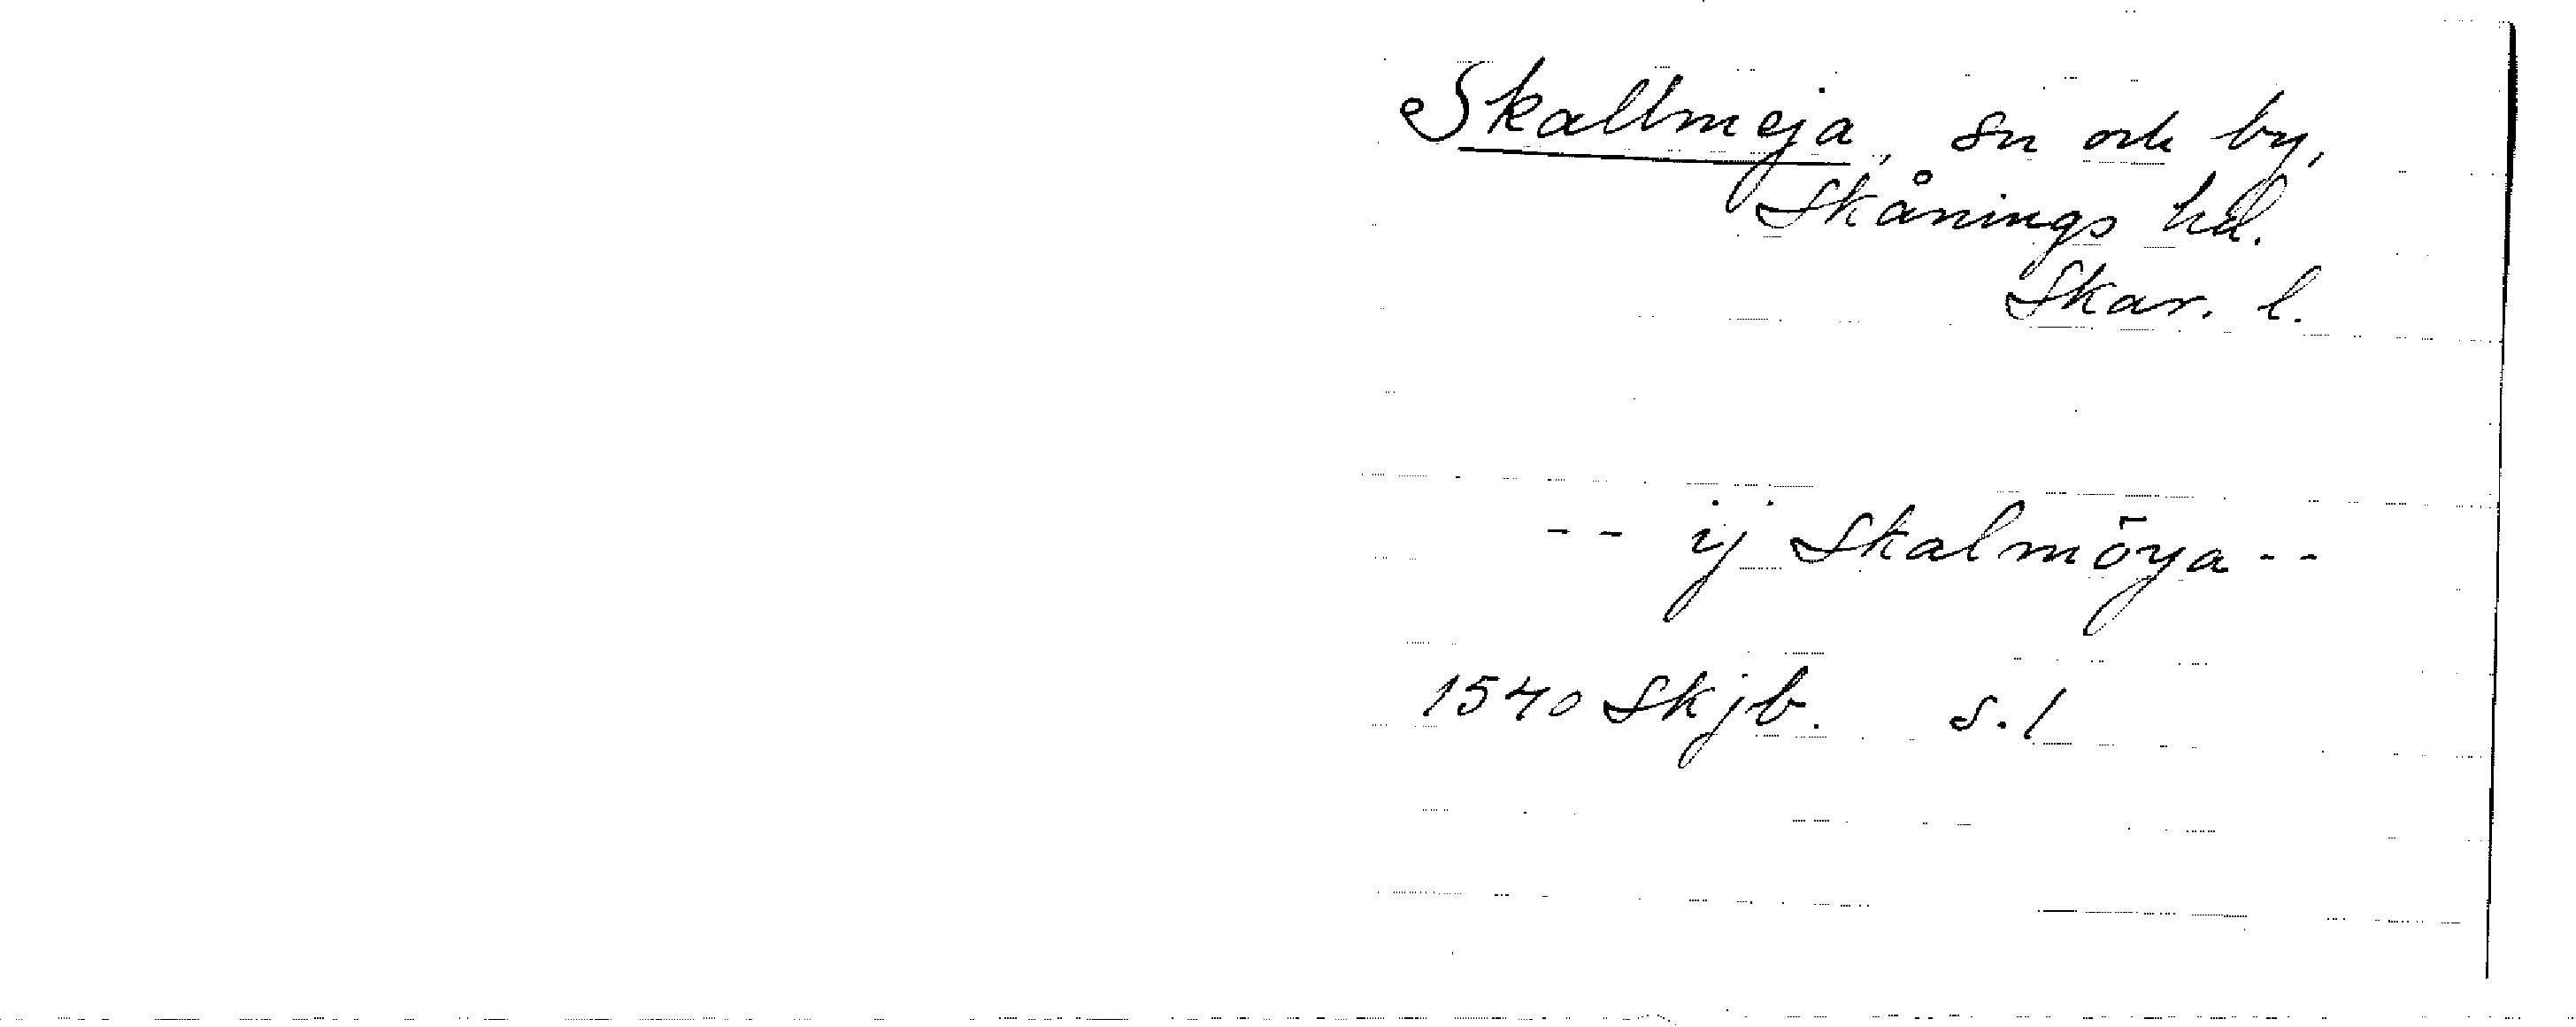 Skallmeja, sn och by,
Skånings hd.
Skar. l.
-- ij Skalmöya --
1540 Skjb. s. 1